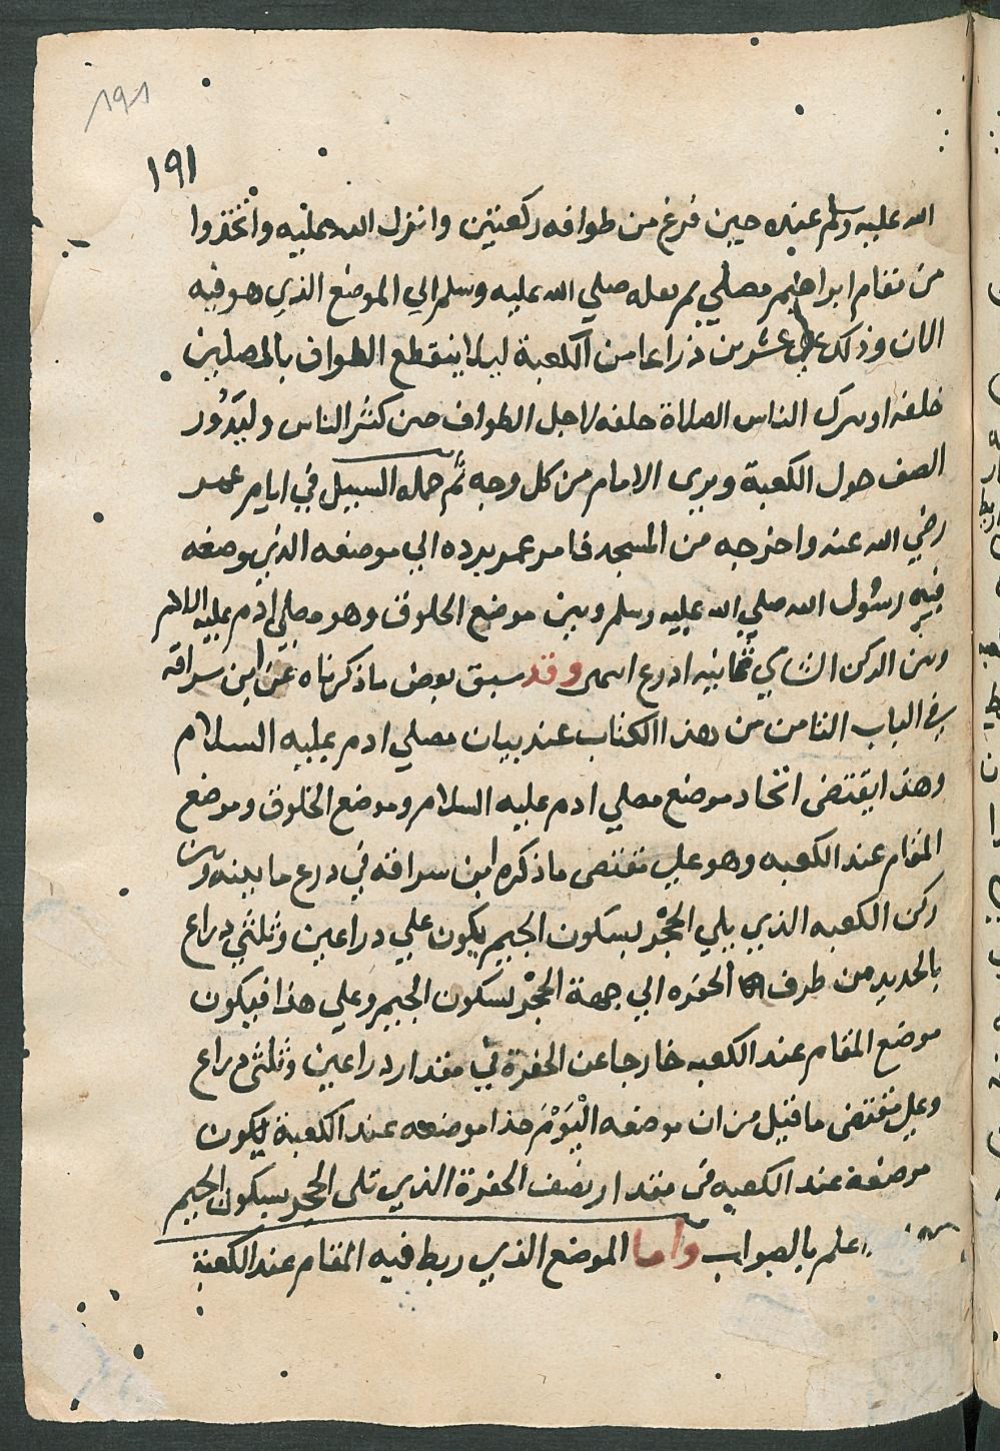 ١٩١
١٩١
الله عليه وسلم عنده حين فرغ من طوافه ركعتين وانزل الله عليه واتَّخذوا
من مقام ابراهيم مصلي ثم نقله صلي الله عليه وسلم الي الموضع الذي هو فيه
الان وذلك علي عشرين ذراعا من الكعبة ليلا ينقطع الطواف بالمصلين
خلفه او يترك الناس الصلاة خلفه لاجل الطواف حين كثُر الناس وليَدُور
الصف حول الكعبة ويرى الامام من كل وجه ثُم حمله السيل في ايام عمر
رضي الله عنه واخرجه من المسجد فامر عمر برده الي موضعه الذي وضعه
فيه رسُول الله صلي الله عليه وسلم وبين موضع الخلوق وهو مصلي ادم عليه السلام
وبين الركن الشامي ثمانيه اذرع انتهى وقد سبق بعض ما ذكرناه عن ابن سراقه
في الباب الثامن من هذا الكتاب عند بيان مصلي ادم عليه السلام
وهذا يقتضى اتحاد موضع مصلي ادم عليه السلام وموضع الخلوق وموضع
المقام عند الكعبه وهو علي مقتضى ما ذكره ابن سراقه في ذرع ما بينه وبين
ركن الكعبه الذي يلي الحجْر بسكون الجيم يكون علي دراعين وثلثي دراع
بالحديد من طرف الحفره الي جهة الحجْر بسكون الجيم وعلي هذا فيكون
موضع المقام عند الكعبه خارجا عن الحفرة في مقدار دراعين وثلثى دراع
وعلي مقتضى ما قيل من ان موضعه الْيَوْمَ حذا موضعه عند الكعبة يكون
موضعه عند الكعبه في مقدار نصف الحفرة الذي تلى الحجر بسكون الجيم
علم بالصواب واما الموضع الذي ربط فيه المقام عند الكعبة